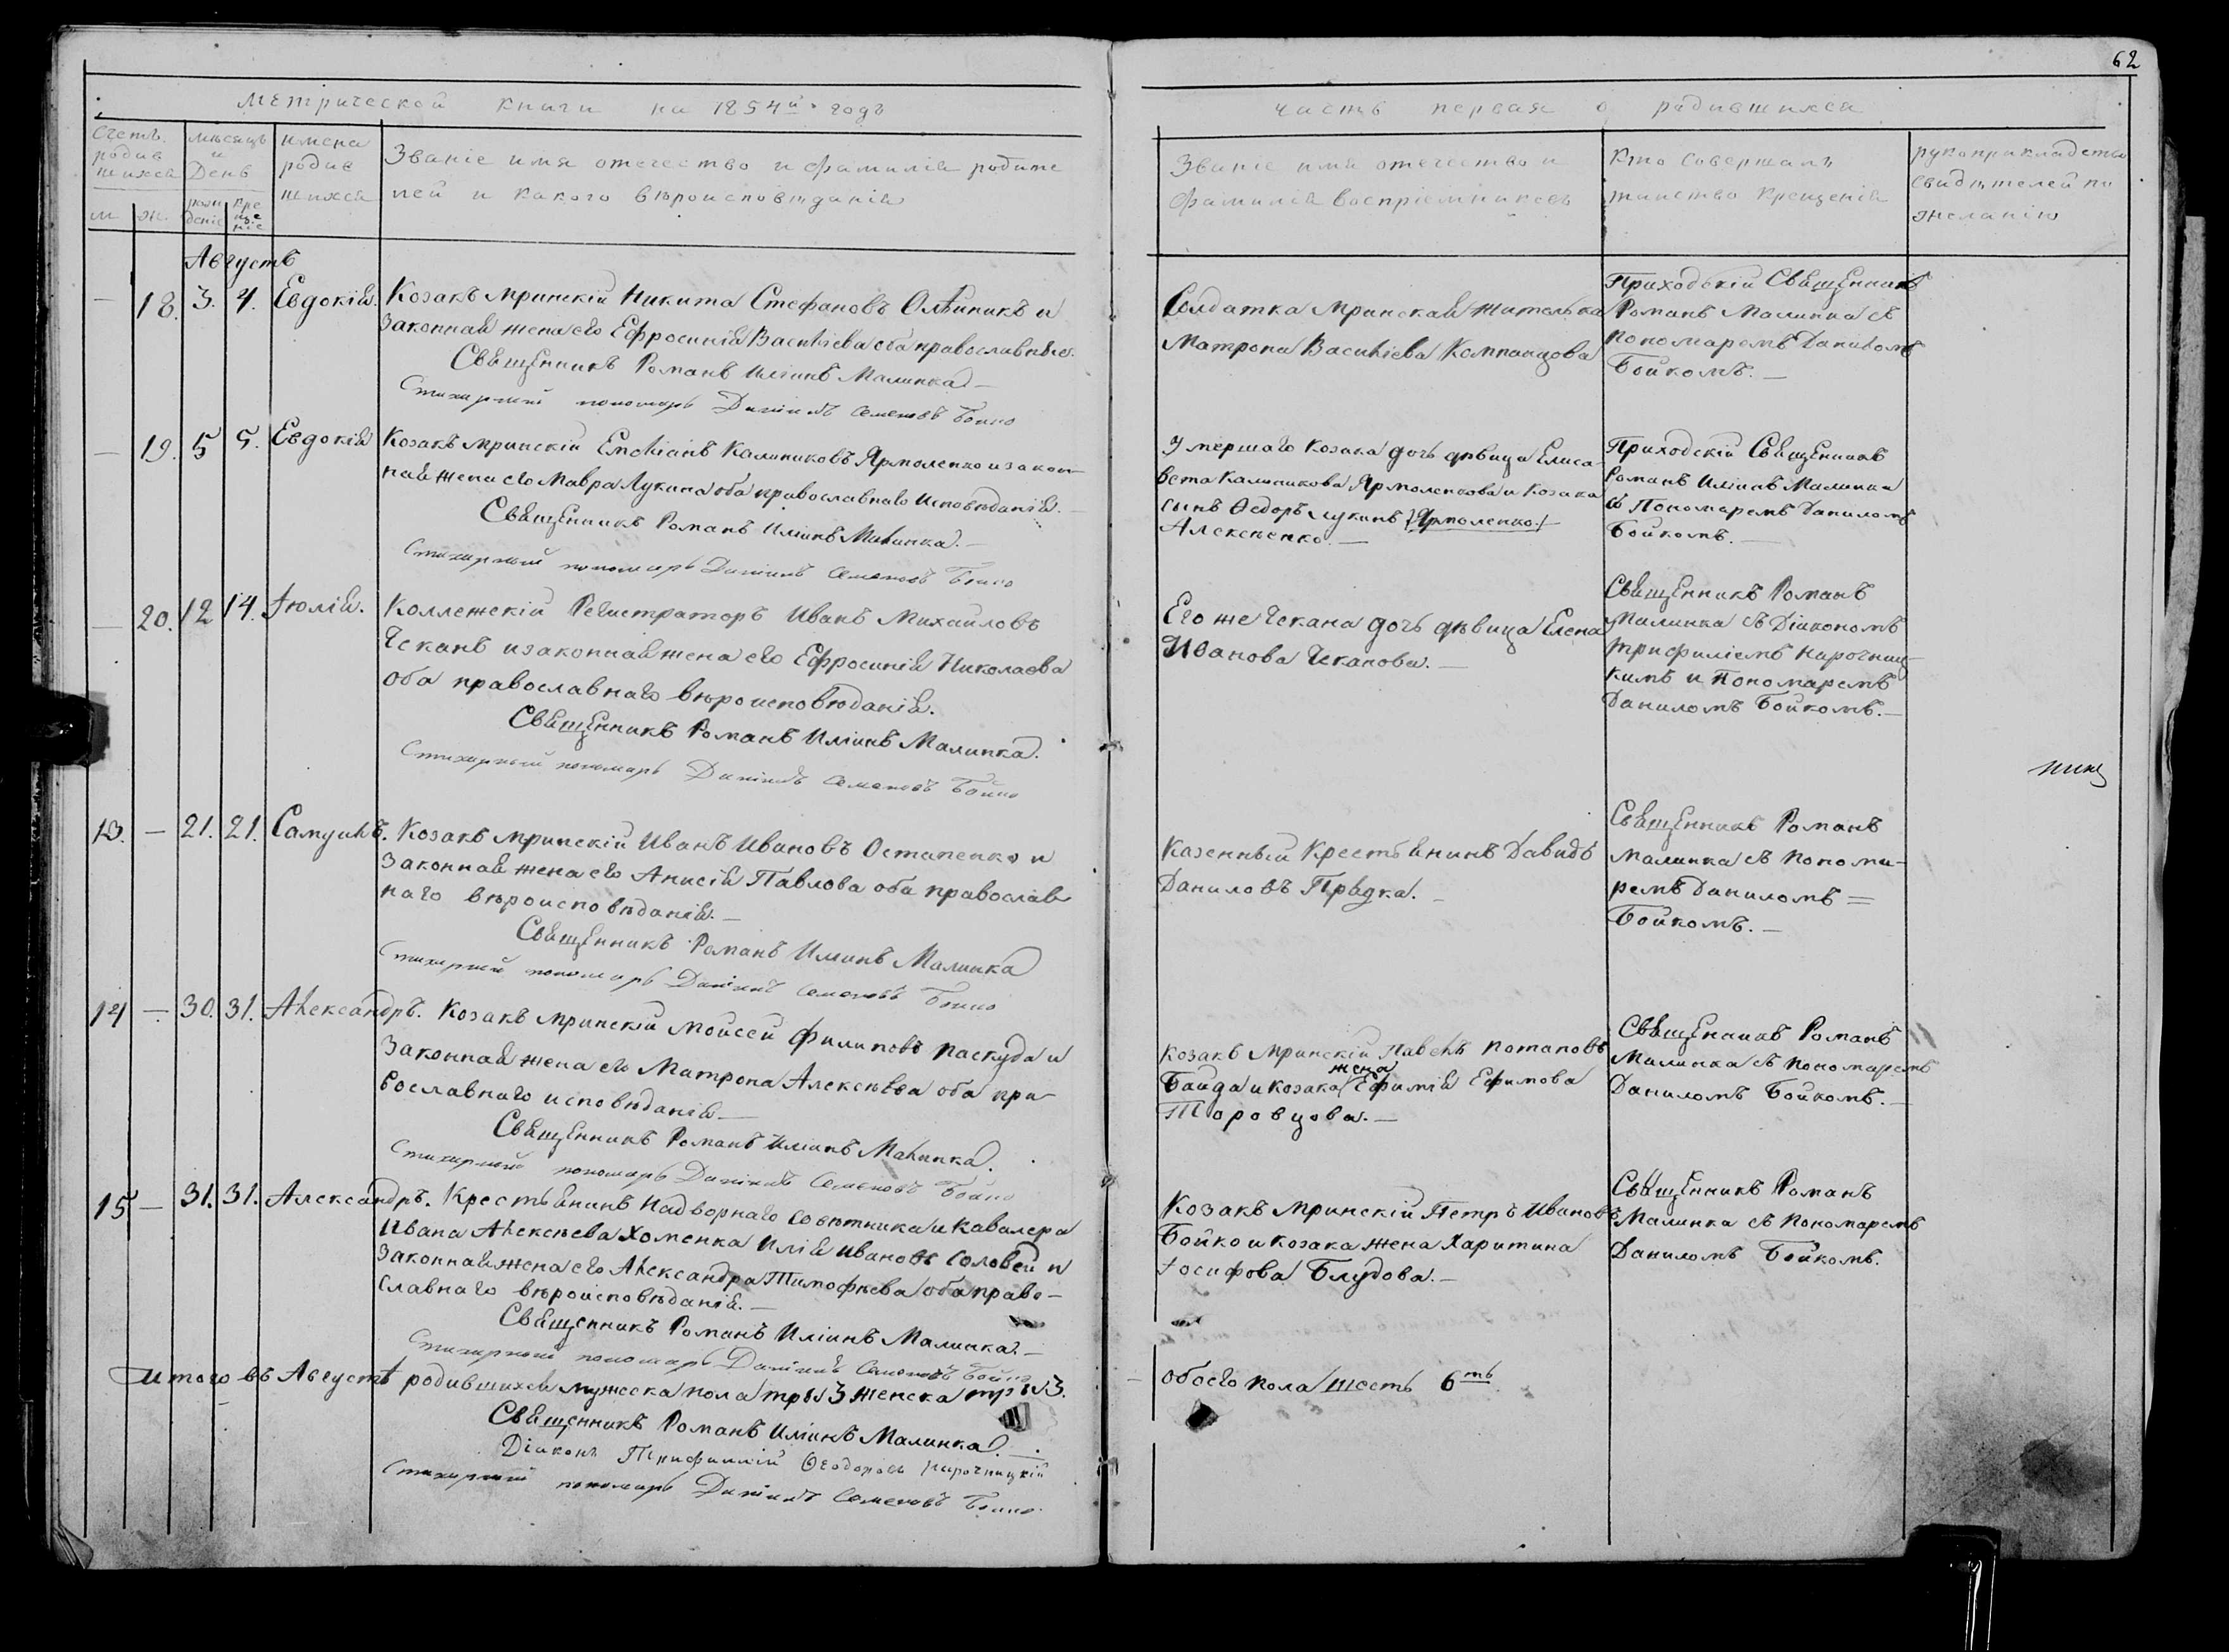 62
Метрической книги на 1854й годъ
часть первая о родившихся
Счетъ родив шихся
м. ж.
мѣсяцъ и День
рож деніе
кре ще ніе
имена родив шихся
Званіе имя отечество и фамилія родите
лей и какого вѣроисповѣданія
Званіе имя отечество и
фамилія воспріемниковъ
Кто совершалъ
таинство крещенія
рукоприкладство
свидѣтелей по
желанію
Августъ
— 18. 3. 4. Евдокія. Козакъ мринскій Никита Стефановъ Олѣйникъ и
законная жена его Ефросинія Василіева оба православные.
Священникъ Романъ Иліинъ Малинка —
Стихарный пономарь Даніилъ Семеновъ Бойко
Солдатка Мринская жителька
Матрона Василіева Компанцова
Приходскій Священникъ
Романъ Малинка съ
пономаремъ Даниломъ
Бойкомъ. —
— 19. 5 5. Евдокія Козакъ мринскій Емеліанъ Калиниковъ Ярмоленко и закон-
ная жена его Мавра Лукина оба православнаго исповѣданія. —
Священникъ Романъ Иліинъ Малинка. —
Стихарный пономарь Даніилъ Семеновъ Бойко
Умершаго козака дочь дѣвица Елиса-
вета Калиникова Ярмоленкова и козака
сынъ Ѳедоръ Лукинъ (Ярмоленко)
Алексѣенко. —
Приходскій Священникъ
Романъ Иліинъ Малинка
съ Пономаремъ Даниломъ
Бойкомъ. —
— 20. 12 14. Іюлія. Коллежскій Регистраторъ Иванъ Михайловъ
Чеканъ и законная жена его Ефросинія Николаева
оба православнаго вѣроисповѣданія.
Священникъ Романъ Иліинъ Малинка.
Стихарный пономарь Даніилъ Семеновъ Бойко
Его же Чекана дочь дѣвица Елена
Иванова Чеканова. —
Священникъ Романъ
Малинка съ Діакономъ
Трифиліемъ Нарочниц-
кимъ и Пономаремъ
Даниломъ Бойкомъ. —
13. — 21. 21. Самуилъ. Козакъ мринскій Иванъ Ивановъ Остапенко и
законная жена его Анисія Павлова оба православ
наго вѣроисповѣданія. —
Священникъ Романъ Иліинъ Малинка
Стихарный пономарь Даніилъ Семеновъ Бойко
Казенный Крестьянинъ Давидъ
Даниловъ Прядка. —
Священникъ Романъ
Малинка съ Понома-
ремъ Даниломъ =
Бойкомъ. —
14 — 30. 31. Александръ. Козакъ мринскій Мойсей Филиповъ Паскуда и
законная жена его Матрона Алексѣева оба пра-
вославнаго исповѣданія —
Священникъ Романъ Иліинъ Малинка.
Стихарный пономарь Даніилъ Семеновъ Бойко
Козакъ Мринскій Павелъ Потаповъ
жена
Байда и козака Ефимія Ефимова
Торовцова. —
Священникъ Романъ
Малинка съ Пономаремъ
Даниломъ Бойкомъ. —
15 — 31. 31. Александръ. Крестьянинъ Надворнаго Совѣтника и Кавалера
Ивана Алексѣева Хоменка Илія Ивановъ Соловей и
законная жена его Александра Тимофѣева оба право-
славнаго вѣроисповѣданія. —
Священникъ Романъ Иліинъ Малинка. —
Стихарный пономарь Даніилъ Семеновъ Бойко
Козакъ Мринскій Петръ Ивановъ
Бойко и козака жена Харитина
Іосифова Блудова. —
Священникъ Романъ
Малинка съ Пономаремъ
Даниломъ Бойкомъ.
Итого въ Августѣ родившихся мужеска пола три 3 женска три 3.
— обоего пола шесть 6ть
Священникъ Романъ Иліинъ Малинка. —
Діаконъ Трифиллій Ѳеодоровъ Нарочницкій
Стихарный пономарь Даніилъ Семеновъ Бойко